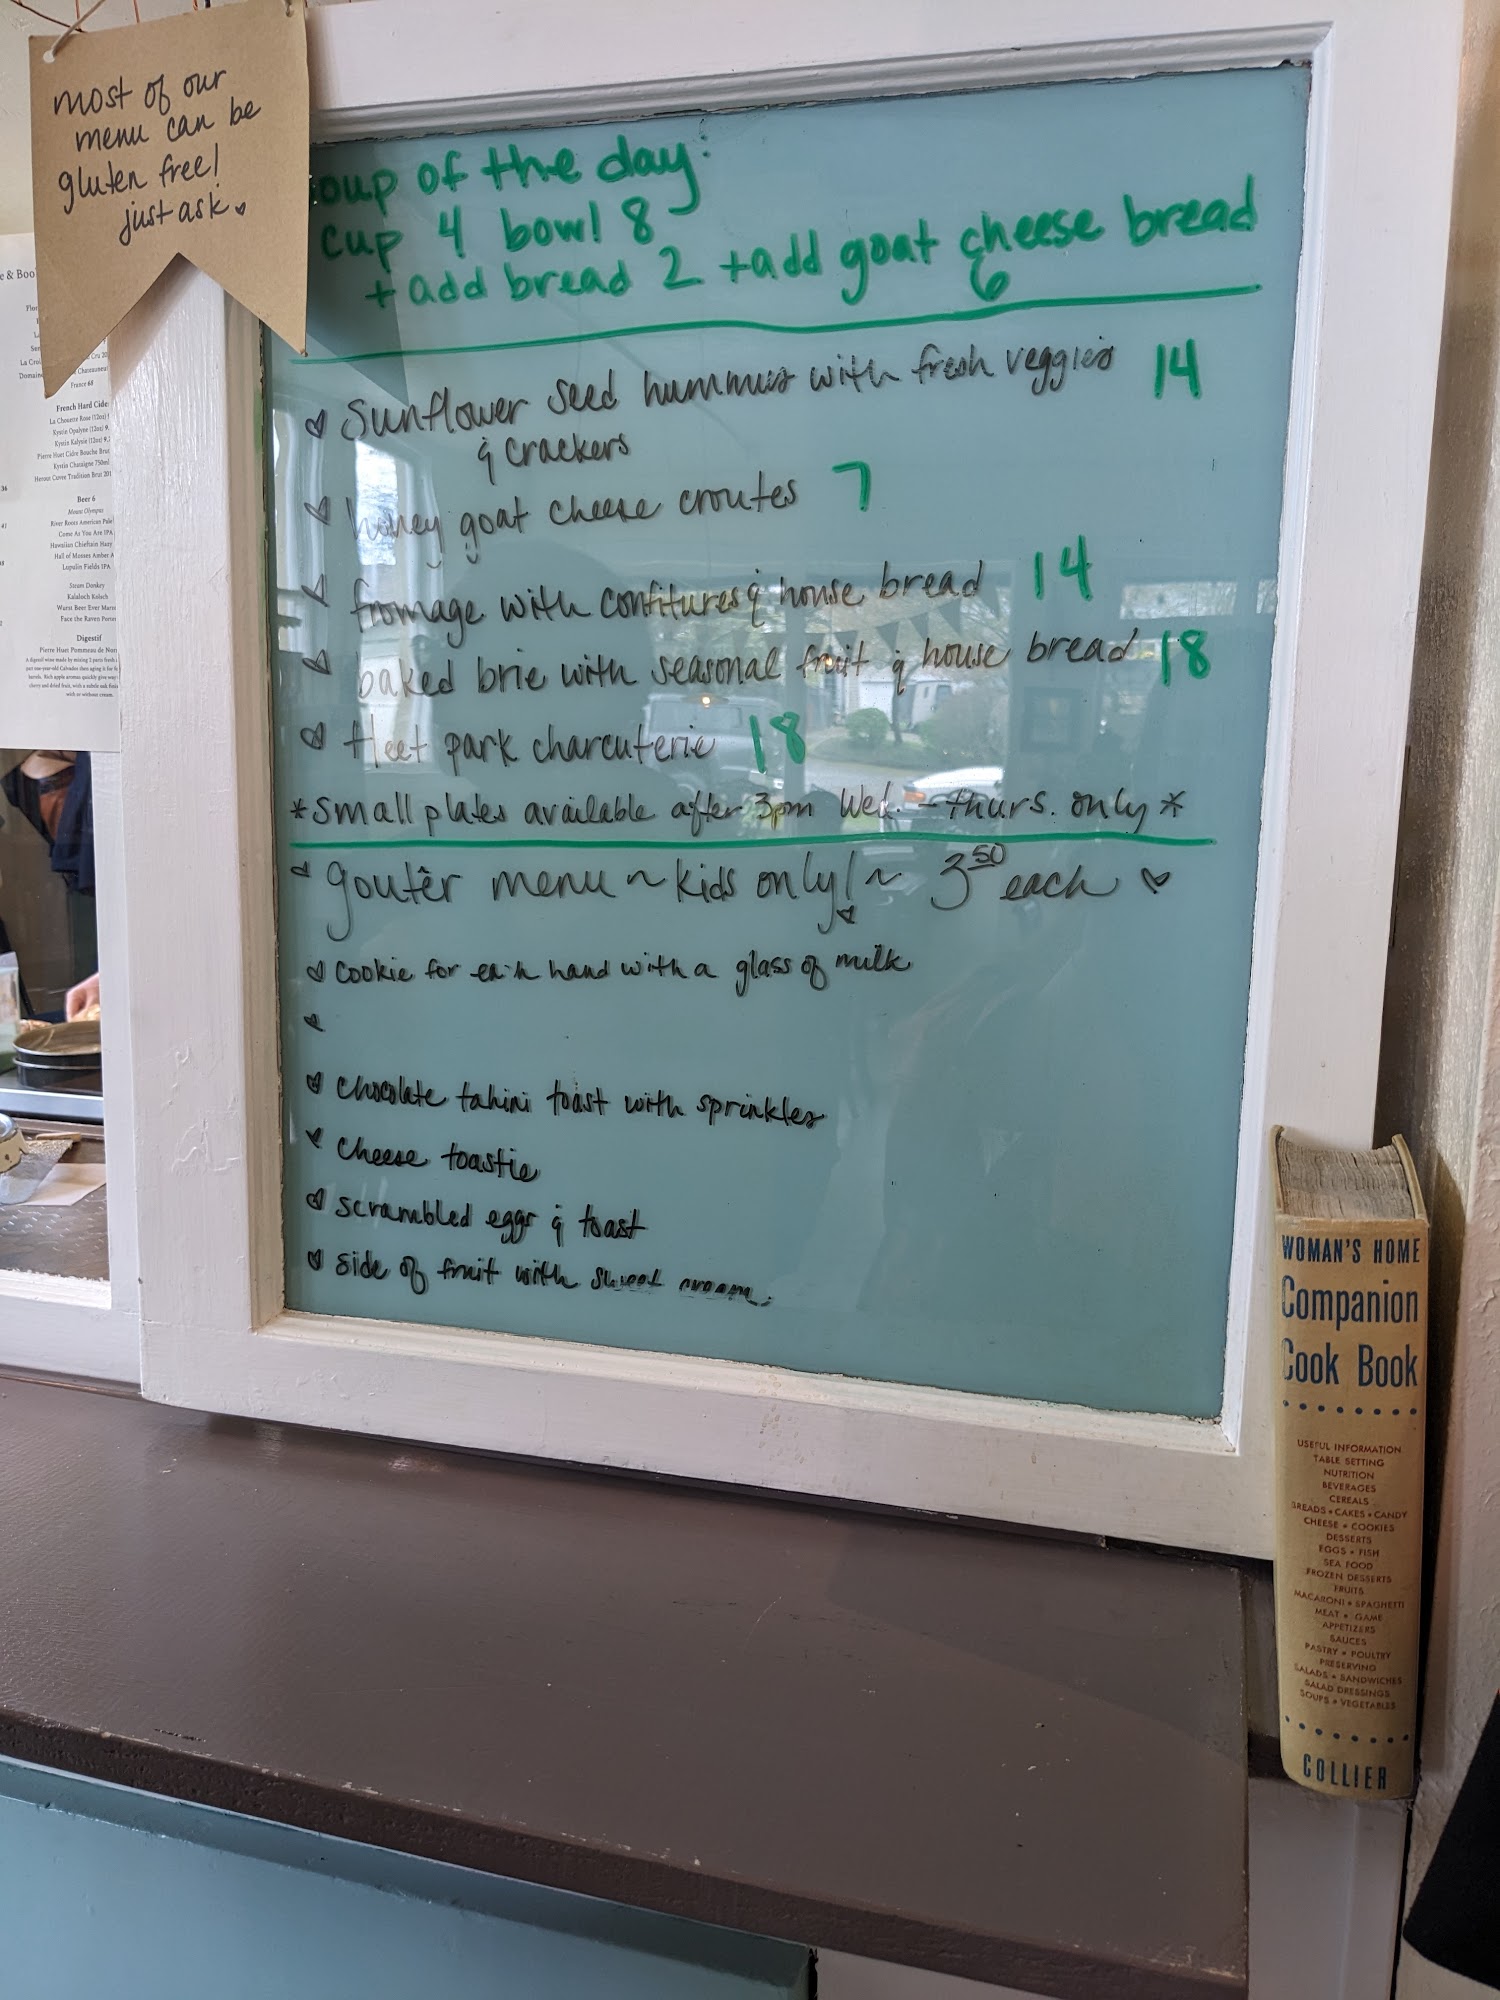 most of our
menu can be
gluten free!
just ask.
oup of the day:
cup 4 bowl 8
+ add bread 2 + add goat cheese bread
6
Sunflower seed hummus with fresh veggies 14
& crackers
honey goat cheese croutes 7
fromage with confitures & house bread 14
baked brie with seasonal fruit & house bread 18
fleet park charcuterie 18
*small plates available after 3pm Wed. - thurs. only*
goutêr menu ~ kids only! ~ 3.50 each
cookie for each hand with a glass of milk
chocolate tahini toast with sprinkles
cheese toastie
scrambled eggs & toast
side of fruit with sweet cream
e & Boo
France 68
French Hard Cide
La Chouette Rose (12oz)
Kystin Opalyne (12oz) 9.
Kystin Kalysie (12oz) 9.
Pierre Huet Cidre Bouche Brut
Kystin Chataigne 750ml
Herout Cuvee Tradition Brut 201
36
Beer 6
Mount Olympus
41
River Roots American Pale
Come As You Are IPA
Hawaiian Chieftain Hazy
Hall of Mosses Amber A
Lupulin Fields IPA
Steam Donkey
Kalaloch Kolsch
Wurst Beer Ever Marze
Face the Raven Porter
Digestif
Pierre Huet Pommeau de Nor
with or without cream.
WOMAN'S HOME
Companion
Cook Book
USEFUL INFORMATION
TABLE SETTING
NUTRITION
BEVERAGES
CEREALS
BREADS • CAKES • CANDY
CHEESE • COOKIES
DESSERTS
EGGS • FISH
SEA FOOD
FROZEN DESSERTS
FRUITS
MACARONI • SPAGHETTI
MEAT • GAME
APPETIZERS
SAUCES
PASTRY • POULTRY
PRESERVING
SALADS • SANDWICHES
SALAD DRESSINGS
SOUPS • VEGETABLES
COLLIER